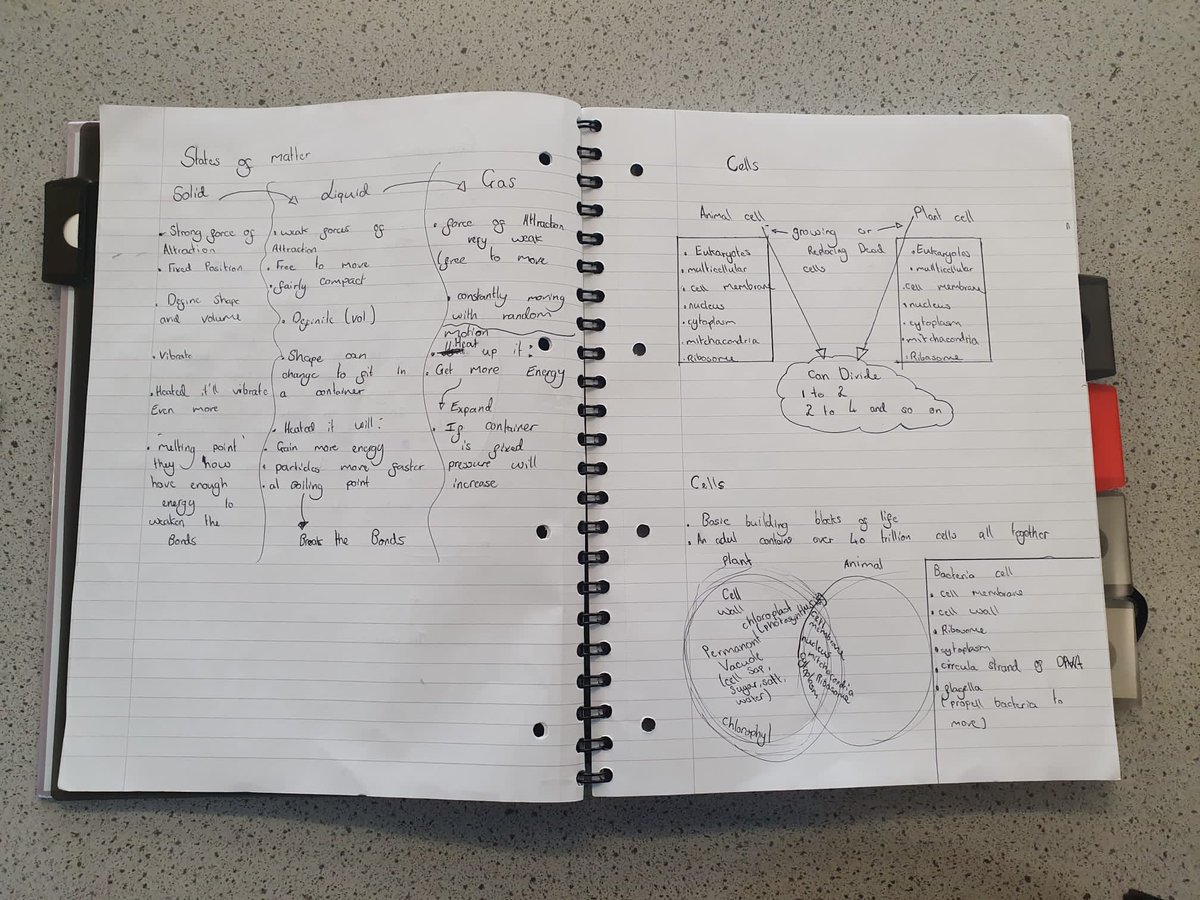 States of matter
Solid
- Strong force of
Attraction
• Fixed Position
• Define shape
and volume
• Vibrate
• Heated it'll vibrate
Even more
• melting point
they now
have enough
energy to
weaken the
Bonds
Liquid
• weak forces of
Attraction
• Free to move
• fairly compact
• Definite (vol)
• Shape can
change to fit in
a container
• Heated it will:
• Gain more energy
• particles move faster
• at boiling point
Break the Bonds
Gas
• force of Attraction
very weak
(free to move
• constantly moving
with random
motion
• Heat up it:
• Get more Energy
Expand
• If container
is fixed
pressure will
increase
Cells
Animal cell
• Eukaryotes
• multicellular
• cell membrane
• nucleus
• cytoplasm
• mitchacondria
• Ribosome
growing or
Replacing Dead
cells
Plant cell
• Eukaryotes
• multicellular
• cell membrane
• nucleus
• cytoplasm
• mitchacondria
• Ribasome
Can Divide
1 to 2
2 to 4 and so on
Cells
• Basic building blocks of life
• An adul contains over 40 trillion cells all together
Plant
Cell
wall
chloroplast
(photosynthesis)
Permanant
Vacuole
(cell sap,
sugar, salt,
water)
Chlorophyl
Cell
membrane
nucleus
mitchacondria
Ribosome
cytoplasm
Animal
Bacteria cell
• cell membrane
• cell wall
• Ribosome
• cytoplasm
• circula strand of DNA
• flagella
(propell bacteria to
move)